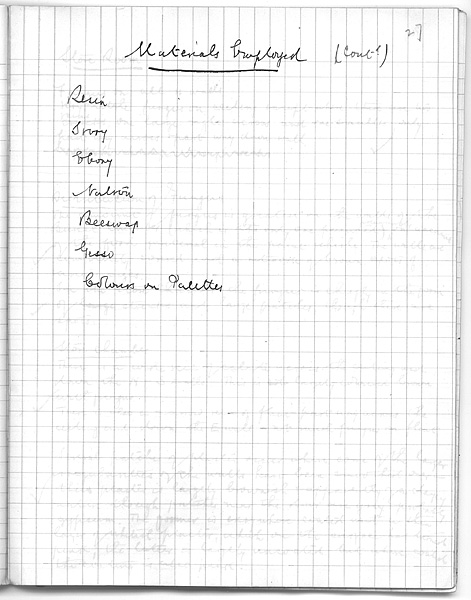 27
Materials Employed (Cont^d)
Resin
Ivory
Ebony
Natron
Beeswax
Gesso
Colours on Palettes